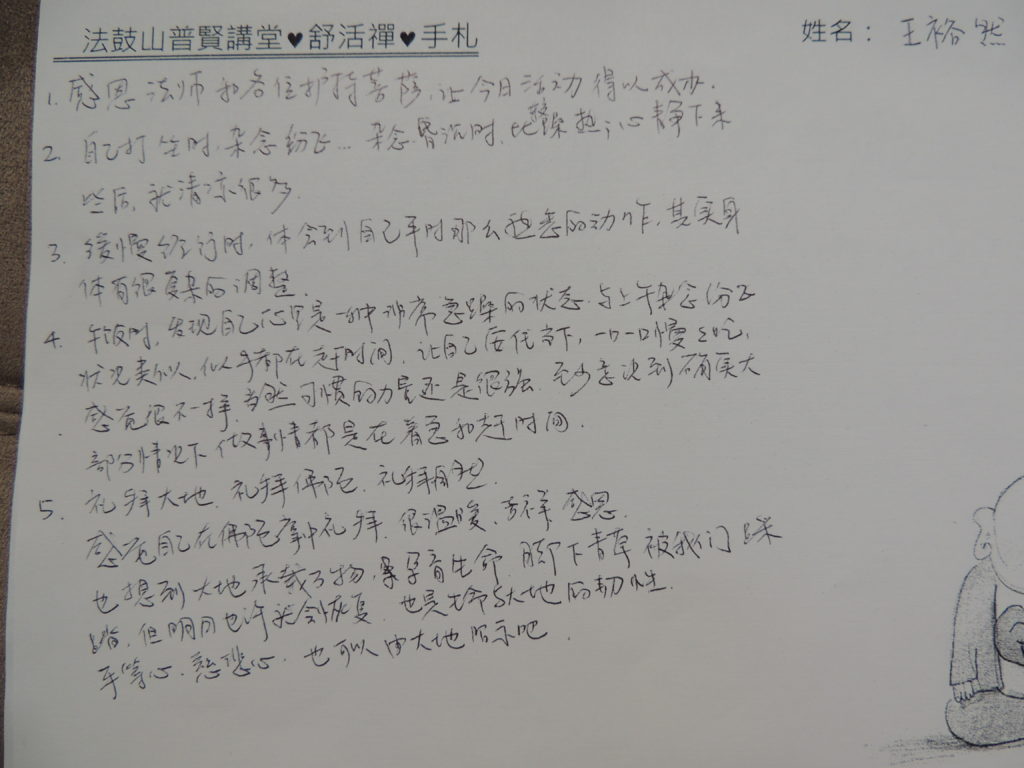 法鼓山普賢講堂♥舒活禪♥手札
姓名： 王裕然
1. 感恩法师和各位护持菩萨,让今日活动得以成办.
2. 自己打坐时,杂念纷飞... 杂念昏沉时,比躁热;心静下来
些后,就清凉很多.
3. 缓慢经行时,体会到自己平时那么的动作,其实身
体有很复杂的调整.
4. 午饭时,发现自己心里是一种非常急躁的状态.与上午杂念纷飞
状况类似,似乎都在赶时间.让自己安住当下,一口一口慢吃,
感觉很不一样.当然习惯的力量还是很强.至少意识到确实大
部分情况下做事情都是在着急和赶时间.
5. 礼拜大地.礼拜佛陀.礼拜自己.
感觉自己在佛陀掌中礼拜.很温暖、吉祥、感恩.
也想到大地承载万物,孕育生命.脚下青草被我们踩
踏,但明日也许就会恢复.也是生命与大地的韧性.
平等心.慈悲心.也可以由大地昭示吧.